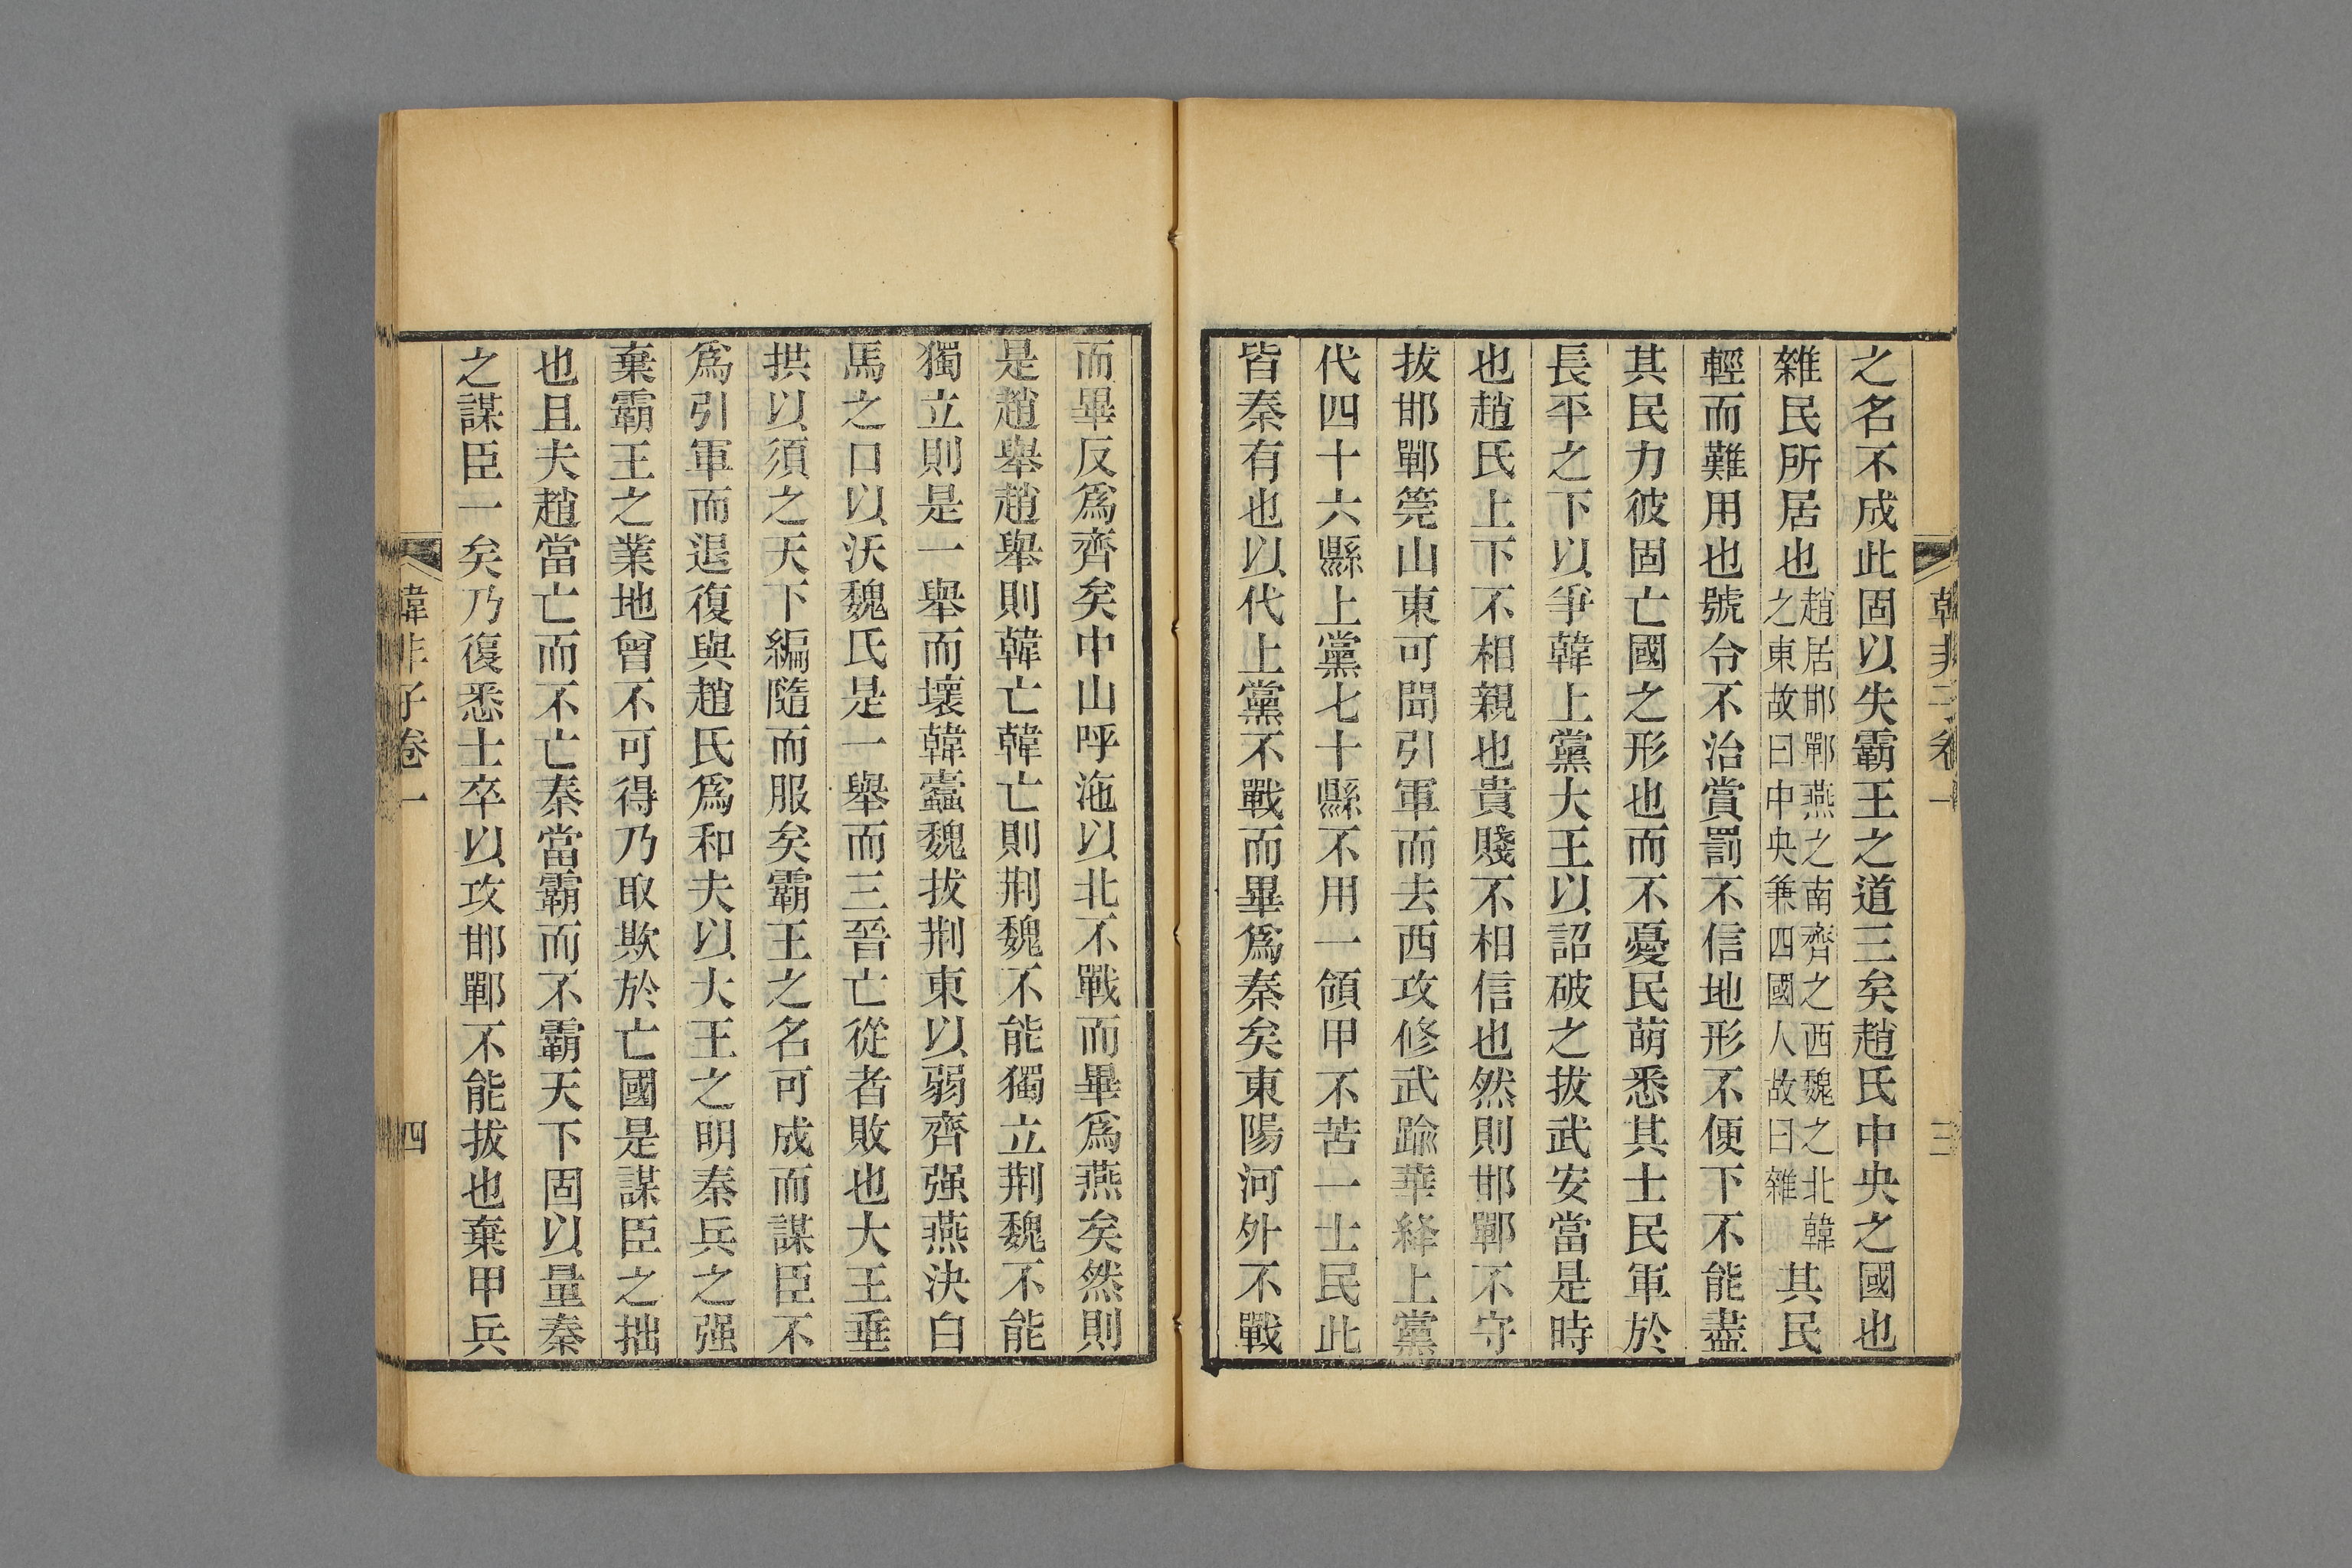 韓非子卷一
三
之名不成此固以失霸王之道三矣趙氏中央之國也
雜民所居也趙居邯鄲燕之南齊之西魏之北韓之東故曰中央兼四國人故曰雜其民
輕而難用也號令不治賞罰不信地形不便下不能盡
其民力彼固亡國之形也而不憂民萌悉其士民軍於
長平之下以爭韓上黨大王以詔破之拔武安當是時
也趙氏上下不相親也貴賤不相信也然則邯鄲不守
拔邯鄲筦山東可聞引軍而去西攻修武踰華絳上黨
代四十六縣上黨七十縣不用一領甲不苦一士民此
皆秦有也以代上黨不戰而畢爲秦矣東陽河外不戰
而畢反爲齊矣中山呼沲以北不戰而畢爲燕矣然則
是趙舉趙舉則韓亡韓亡則荆魏不能獨立荆魏不能
獨立則是一舉而壞韓蠹魏拔荆東以弱齊强燕決白
馬之口以沃魏氏是一舉而三晉亡從者敗也大王垂
拱以須之天下編隨而服矣霸王之名可成而謀臣不
爲引軍而退復與趙氏爲和夫以大王之明秦兵之强
棄霸王之業地曾不可得乃取欺於亡國是謀臣之拙
也且夫趙當亡而不亡秦當霸而不霸天下固以量秦
之謀臣一矣乃復悉士卒以攻邯鄲不能拔也棄甲兵
韓非子卷一
四